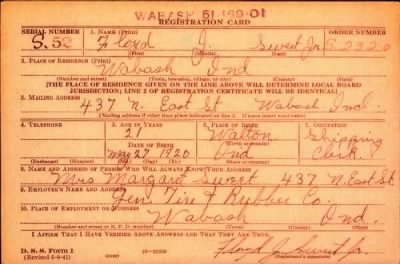 WABASH 51-189-01
REGISTRATION CARD
SERIAL NUMBER 1. NAME (Print) ORDER NUMBER
S. 52 Floyd J Sweet Jr. S 2320
(First) (Middle) (Last)
2. PLACE OF RESIDENCE (Print)
Wabash Ind
(Number and street) (Town, township, village, or city) (County) (State)
[THE PLACE OF RESIDENCE GIVEN ON THE LINE ABOVE WILL DETERMINE LOCAL BOARD
JURISDICTION; LINE 2 OF REGISTRATION CERTIFICATE WILL BE IDENTICAL]
3. MAILING ADDRESS
437 N. East St Wabash Ind.
[Mailing address if other than place indicated on line 2. If same insert word same]
4. TELEPHONE 5. AGE IN YEARS 6. PLACE OF BIRTH 7. OCCUPATION
21 Walton Shipping
DATE OF BIRTH
May 27 1920 Ind Clerk.
(Exchange) (Number) (Mo.) (Day) (Yr.) (State or country)
8. NAME AND ADDRESS OF PERSON WHO WILL ALWAYS KNOW YOUR ADDRESS
Mrs Margard Sweet 437 N. East St.
9. EMPLOYER'S NAME AND ADDRESS
Gen. Tire & Rubber Co.
10. PLACE OF EMPLOYMENT OR BUSINESS
Wabash Ind.
(Number and street or R. F. D. number) (Town) (County) (State)
I AFFIRM THAT I HAVE VERIFIED ABOVE ANSWERS AND THAT THEY ARE TRUE.
D. S. S. Form 1
(Revised 6-9-41) (over) Floyd J. Sweet Jr.